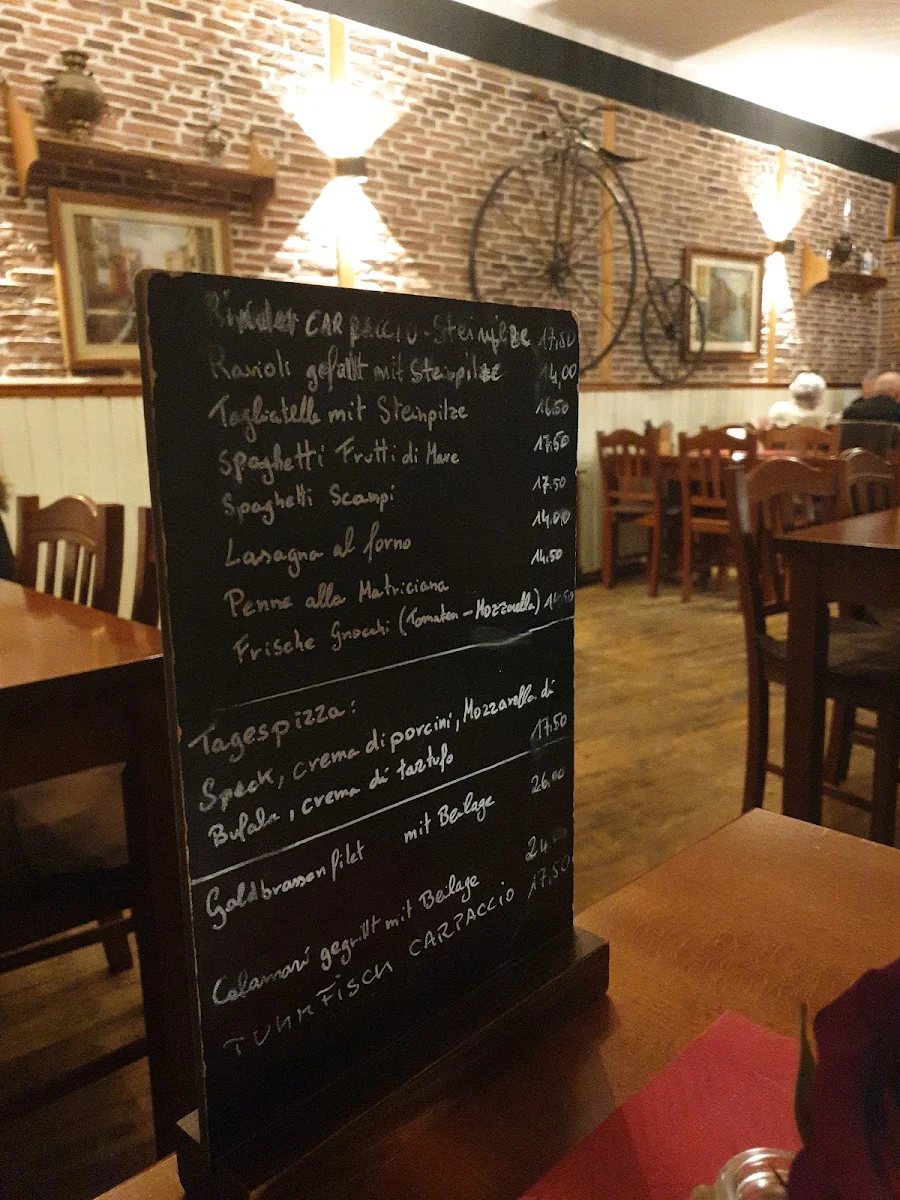 Rinder CARPACCIO - Steinpilze 17.50
Ravioli gefüllt mit Steinpilze 14,00
Tagliatelle mit Steinpilze 16.50
Spaghetti Frutti di Mare 17.50
Spaghetti Scampi 17.50
Lasagna al forno 14.00
Penne alla Matriciana 14.50
Frische Gnocchi (Tomaten - Mozzarella) 14.50
Tagespizza:
Speck, crema di porcini, Mozzarella di
Bufala, crema di tartufo 17.50
Goldbrassenfilet mit Beilage 26.00
Calamari gegrillt mit Beilage 24.00
THUNFISCH CARPACCIO 17.50